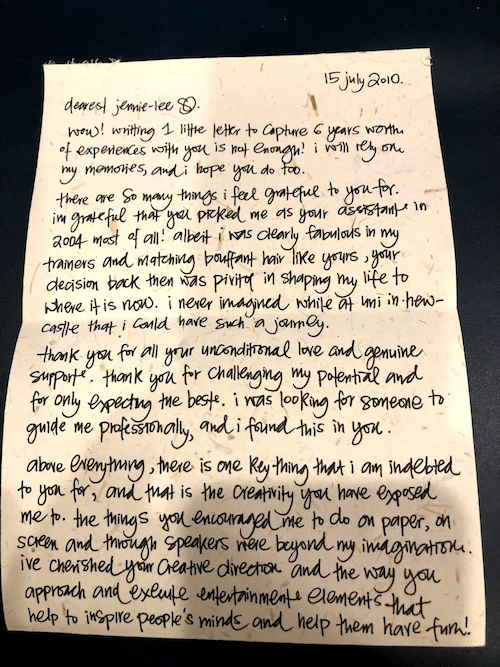 15 july 2010.
dearest jennie-lee
wow! writing 1 little letter to capture 6 years worth
of experiences with you is not enough! i will rely on
my memories, and i hope you do too.
there are so many things i feel grateful to you for.
im grateful that you picked me as your assistant in
2004 most of all! albeit i was clearly fabulous in my
trainers and matching bouffant hair like yours, your
decision back then was pivitol in shaping my life to
where it is now. i never imagined while at uni in new-
castle that i could have such a journey.
thank you for all your unconditional love and genuine
support. thank you for challenging my potential and
for only expecting the best. i was looking for someone to
guide me professionally, and i found this in you.
above everything, there is one key thing that i am indebted
to you for, and that is the creativity you have exposed
me to. the things you encouraged me to do on paper, on
screen and through speakers were beyond my imagination.
ive cherished your creative direction and the way you
approach and execute entertainment elements that
help to inspire people's minds and help them have fun!